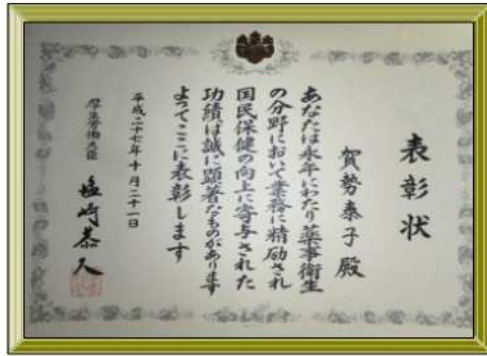 表彰状
賀勢泰子殿
あなたは永年にわたり薬事衛生
の分野において業務に精励され
国民保健の向上に寄与された
功績は誠に顕著なものがあります
よってここに表彰します
平成二十七年十月二十一日
厚生労働大臣 塩崎恭久